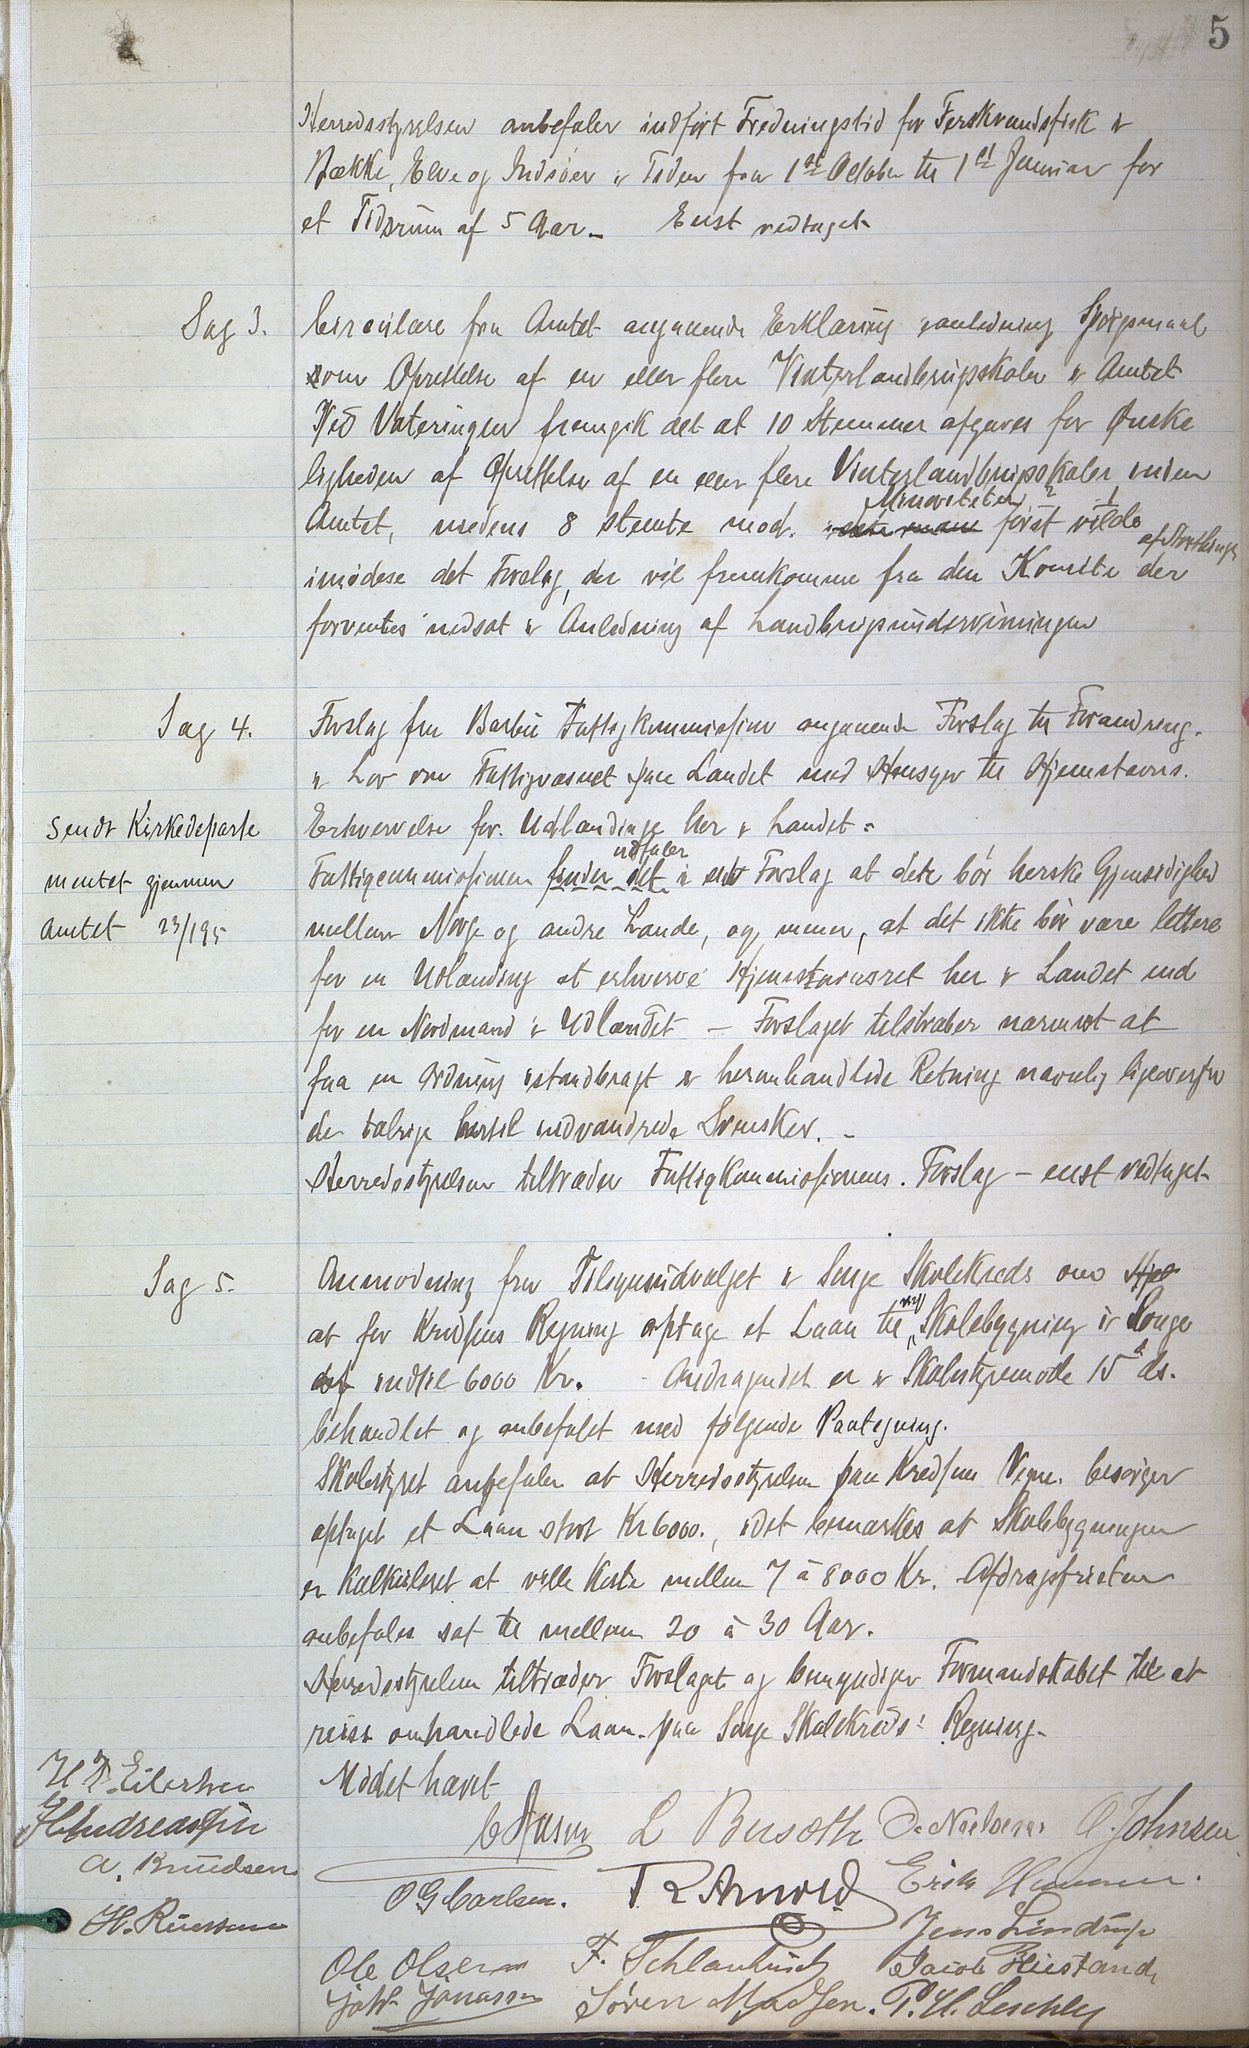 5
Herredsstyrelsen anbefaler indført Fredningstid for Ferskvandsfisk i
Bække, Elve og Indsøer i Tiden fra 1ste October til 1st Januar for
et Tidsrum af 5 Aar. Enst vedtaget
Sag 3. Circulære fra Amtet angaaende Erklæring i anledning Spørgsmaal
om Oprettelse af en eller flere Vinterlandbrugsskoler i Amtet
Ved Voteringen fremgik det at 10 Stemmer afgaves for Ønske
ligheden af Oprettelse af en eller flere Vinterlandbrugsskoler inden
Minoriteten 2 1
Amtet, medens 8 stemte mod. først vilde
af Storthinget
imødese det Forslag, der vil fremkomme fra den Komite der
forventes nedsat i Anledning af Landbrugsundervisningen
Sag 4. Forslag fra Barbu Fattigkommission angaaende Forslag til Forandring
i Lov om Fattigvæsnet paa Landet med Hensyn til Hjemstavns
Sendt Kirkedeparte
mentet gjennem
Amtet 23/1 95
Erhvervelse for Udlændinge her i Landet.
udtaler
Fattigcommissionen finder det i sit Forslag at dete bør herske Gjensidighed
mellem Norge og andre Lande, og mener, at det ikke bør være lettere
for en Udlænding at erhverve Hjemstavnsret her i Landet end
for en Nordmand i Udlandet – Forslaget tilstræber nærmest at
faa en Ordning istandbragt i heromhandlede Retning navnlig ligeoverfor
de talrige hertil indvandrede Svensker. –
Herredsstyrelsen tiltræder Fattigkommissionens Forslag – enst vedtaget
Sag 5. Anmodning fra Tilsynsudvalget i Songe Skolekreds om
at for Kredsens Regning optage et Laan til ny Skolebygning i Songe
indtil 6000 Kr. – Andragendet er i Skolestyremøde 15 ds.
behandlet og anbefalet med følgende Paategning.
Skolestyret anbefaler at Herredsstyrelsen paa Kredsens Vegne besørger
optaget et Laan stort Kr 6000., idet bemærkes at Skolebygningen
er kalkuleret at ville koste mellem 7 à 8000 Kr. Afdragsfristen
anbefales sat til mellem 20 à 30 Aar.
Herredsstyrelsen tiltræder Forslaget og bemyndiger Formandskabet til at
reise omhandlede Laan paa Songe Skolekreds' Regning.
Mødet hævet
H T. Eilertsen
H Andreassen
A. Knudsen
L Busoth O. Johnsen
O G Carlsen. T R Arnold Erik
Jens Lindrup
Ole Olsen Jacob
Joh. Jonassen Søren Madsen. P. H.